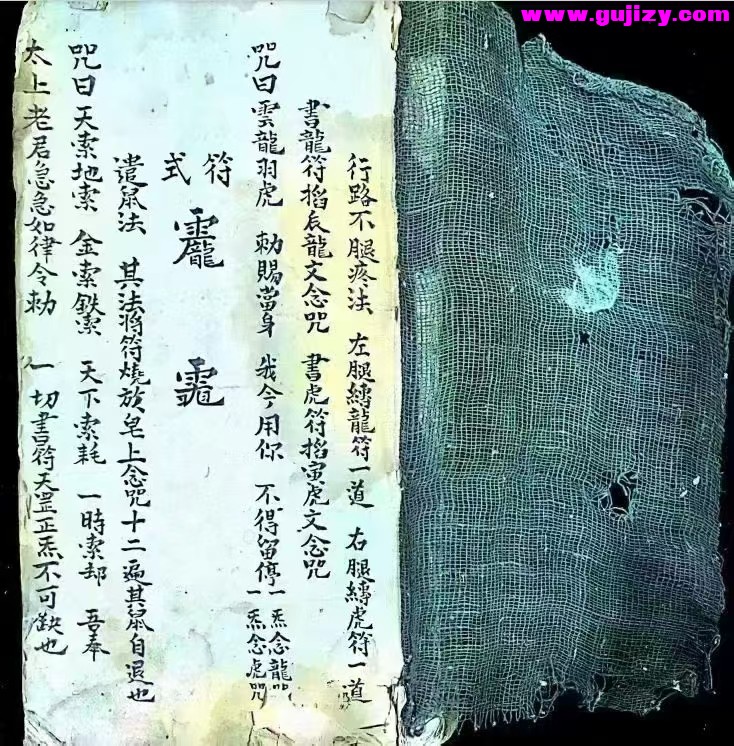 www.gujizy.com
行路不腿疼法 左腿縛龍符一道 右腿縛虎符一道
書龍符掐辰龍文念咒 書虎符掐寅虎文念咒
咒曰雲龍羽虎 勅賜當身 我今用你 不得留停 一炁念龍咒 一炁念虎咒
符式
靇
遣鼠法 其法將符燒放皂上念咒十二遍其鼠自退也
咒曰天索地索 金索鉄索 天下索耗 一時索却 吾奉
太上老君急急如律令勅 一切書符天罡正炁不可缺也